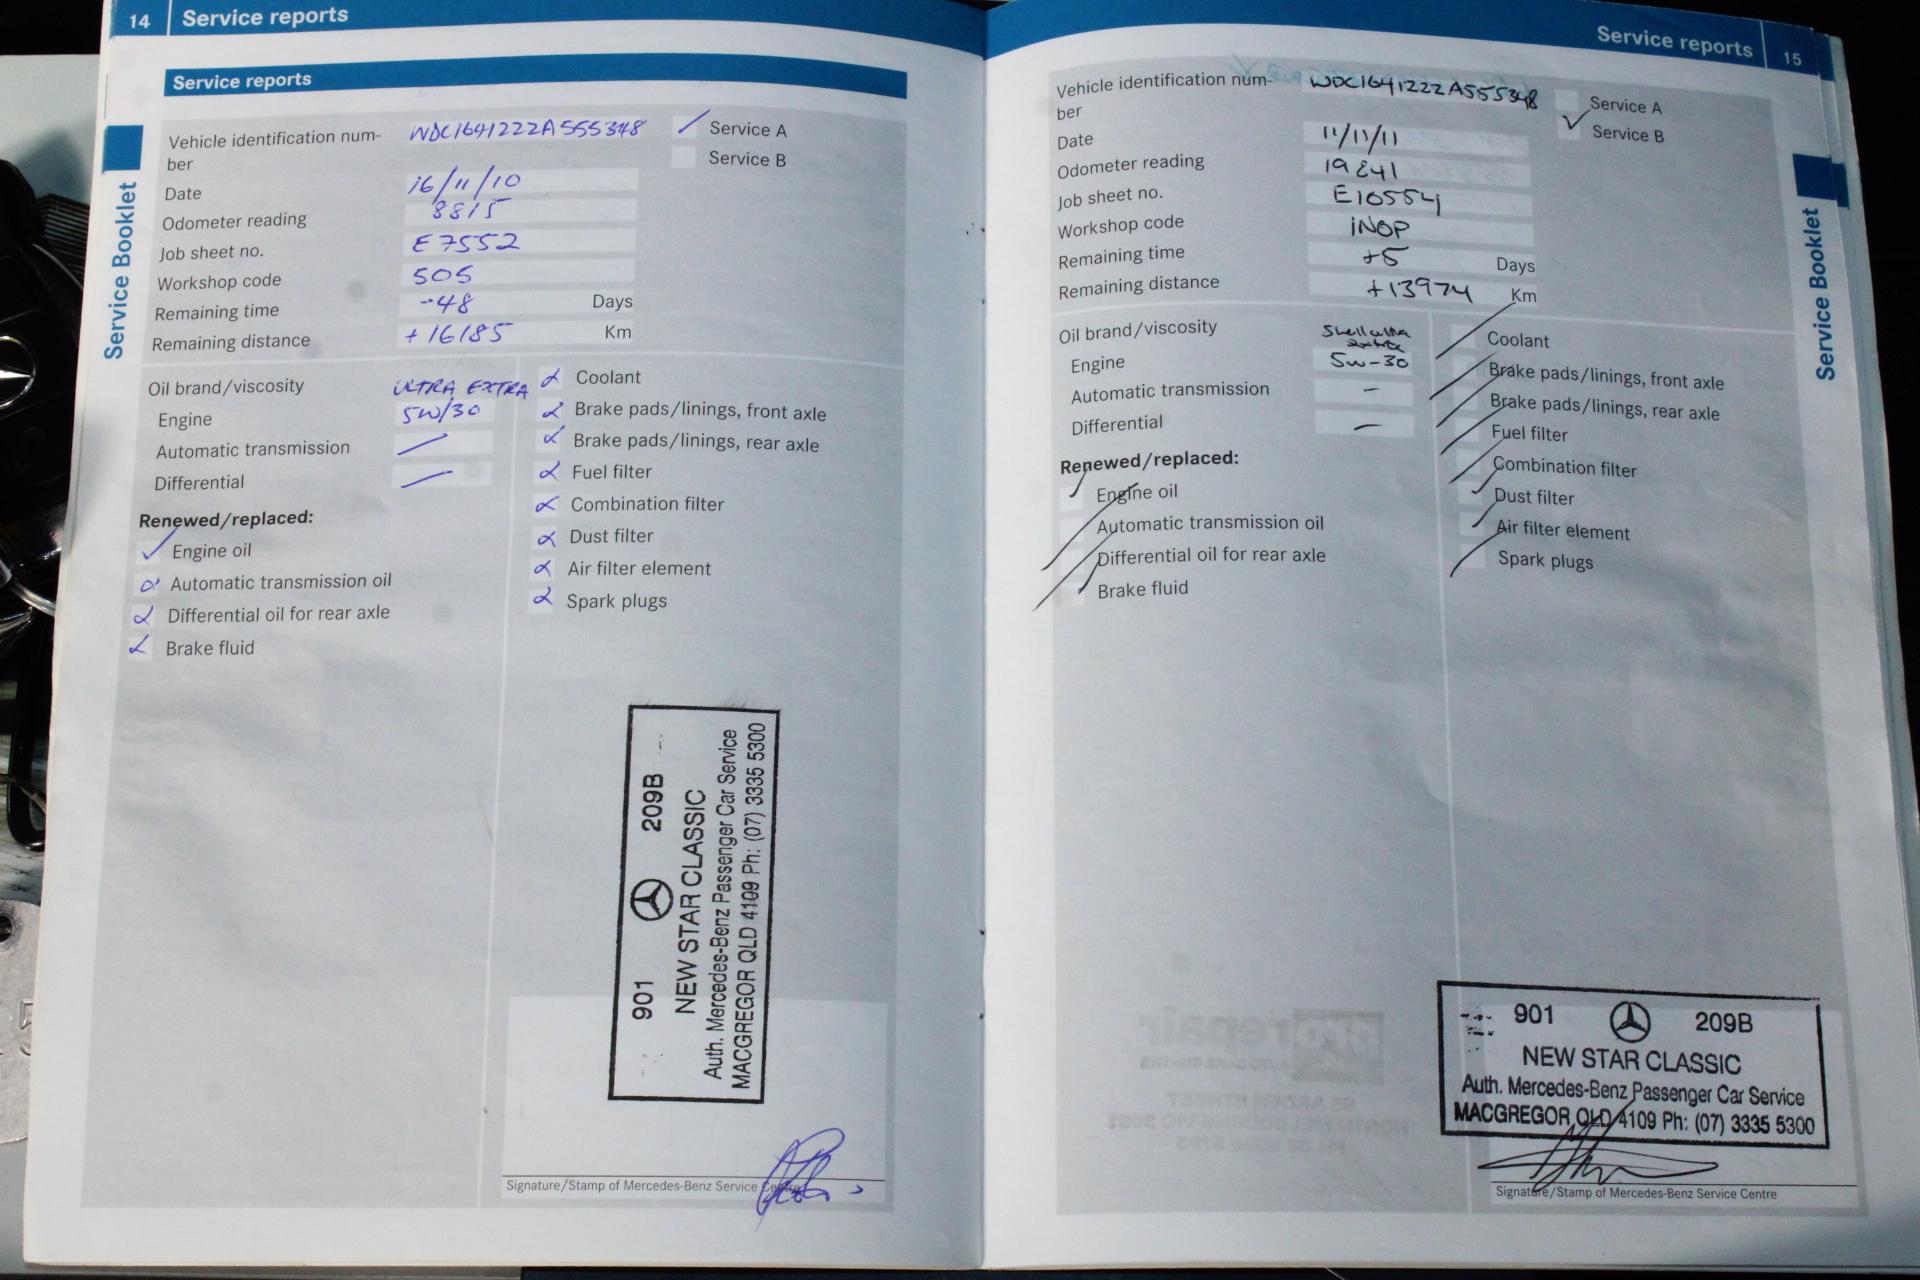 14 Service reports
Service reports
Service Booklet
Vehicle identification num-
ber
WDC1641222A555348
Service A
Service B
Date 16/11/10
Odometer reading 8815
Job sheet no. E7552
Workshop code 505
Remaining time -48 Days
Remaining distance +16185 Km
Oil brand/viscosity ULTRA EXTRA
Engine 5W/30
Automatic transmission —
Differential —
Renewed/replaced:
Engine oil
Automatic transmission oil
Differential oil for rear axle
Brake fluid
Coolant
Brake pads/linings, front axle
Brake pads/linings, rear axle
Fuel filter
Combination filter
Dust filter
Air filter element
Spark plugs
901 209B
NEW STAR CLASSIC
Auth. Mercedes-Benz Passenger Car Service
MACGREGOR QLD 4109 Ph: (07) 3335 5300
Signature/Stamp of Mercedes-Benz Service Centre
Service reports 15
Service Booklet
Vehicle identification num-
ber
WDC1641222A555348
Service A
Service B
Date 11/11/11
Odometer reading 19841
Job sheet no. E10554
Workshop code INOP
Remaining time +5 Days
Remaining distance +13974 Km
Oil brand/viscosity Shell ultra
Engine 5W-30
Automatic transmission —
Differential —
Renewed/replaced:
Engine oil
Automatic transmission oil
Differential oil for rear axle
Brake fluid
Coolant
Brake pads/linings, front axle
Brake pads/linings, rear axle
Fuel filter
Combination filter
Dust filter
Air filter element
Spark plugs
901 209B
NEW STAR CLASSIC
Auth. Mercedes-Benz Passenger Car Service
MACGREGOR QLD 4109 Ph: (07) 3335 5300
Signature/Stamp of Mercedes-Benz Service Centre